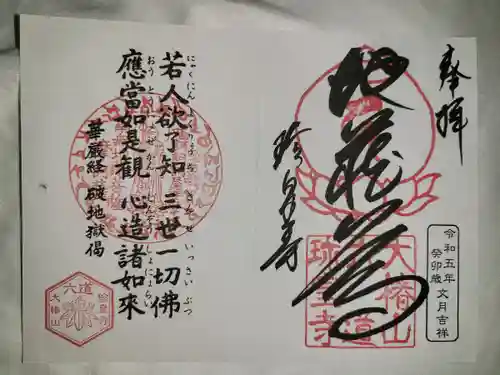 奉拝
地蔵尊
珍皇寺
大椿山
六道
令和五年
癸卯歳 文月吉祥
若人欲了知 三世一切佛
應當如是觀 心造諸如來
華嚴経 破地獄偈
六道
大椿山